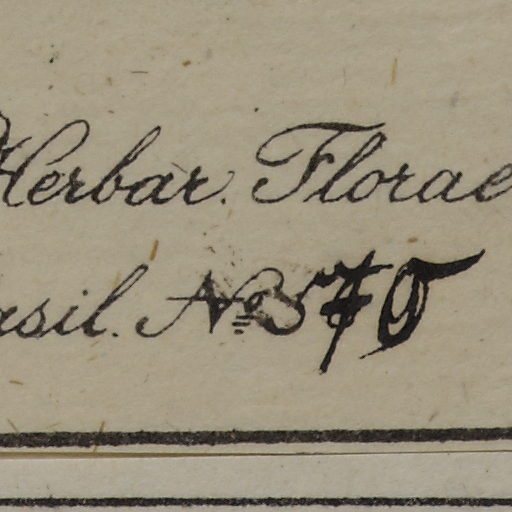 Herbar. Florae
sil. No 570